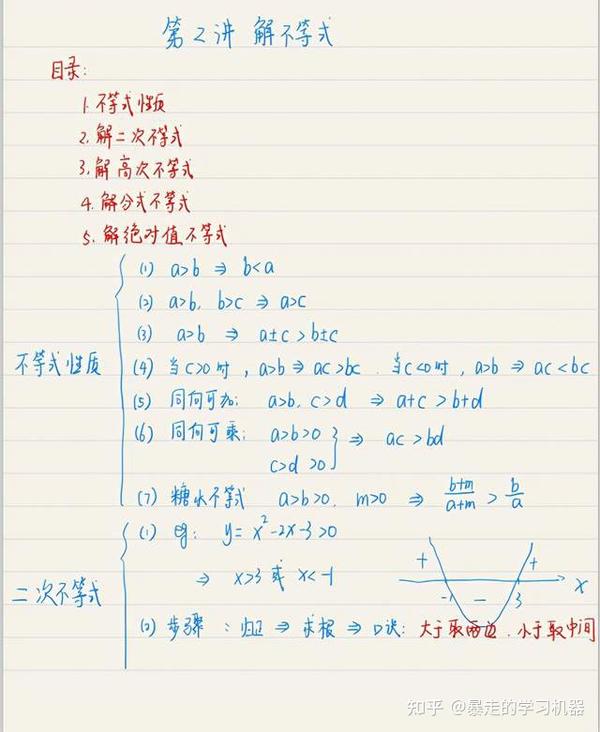 第2讲 解不等式
目录:
1. 不等式性质
2. 解二次不等式
3. 解高次不等式
4. 解分式不等式
5. 解绝对值不等式
不等式性质
(1) a>b ⇒ b<a
(2) a>b, b>c ⇒ a>c
(3) a>b ⇒ a±c>b±c
(4) 当c>0时, a>b ⇒ ac>bc. 当c<0时, a>b ⇒ ac<bc
(5) 同向可加: a>b, c>d ⇒ a+c>b+d
(6) 同向可乘: a>b>0
c>d>0 } ⇒ ac>bd
(7) 糖水不等式 a>b>0, m>0 ⇒ (b+m)/(a+m) > b/a
二次不等式
(1) eg: y=x²-2x-3>0
⇒ x>3 或 x<-1
+ -1 − 3 + x
(2) 步骤: 归正 ⇒ 求根 ⇒ 口诀: 大于取两边, 小于取中间
知乎 @暴走的学习机器